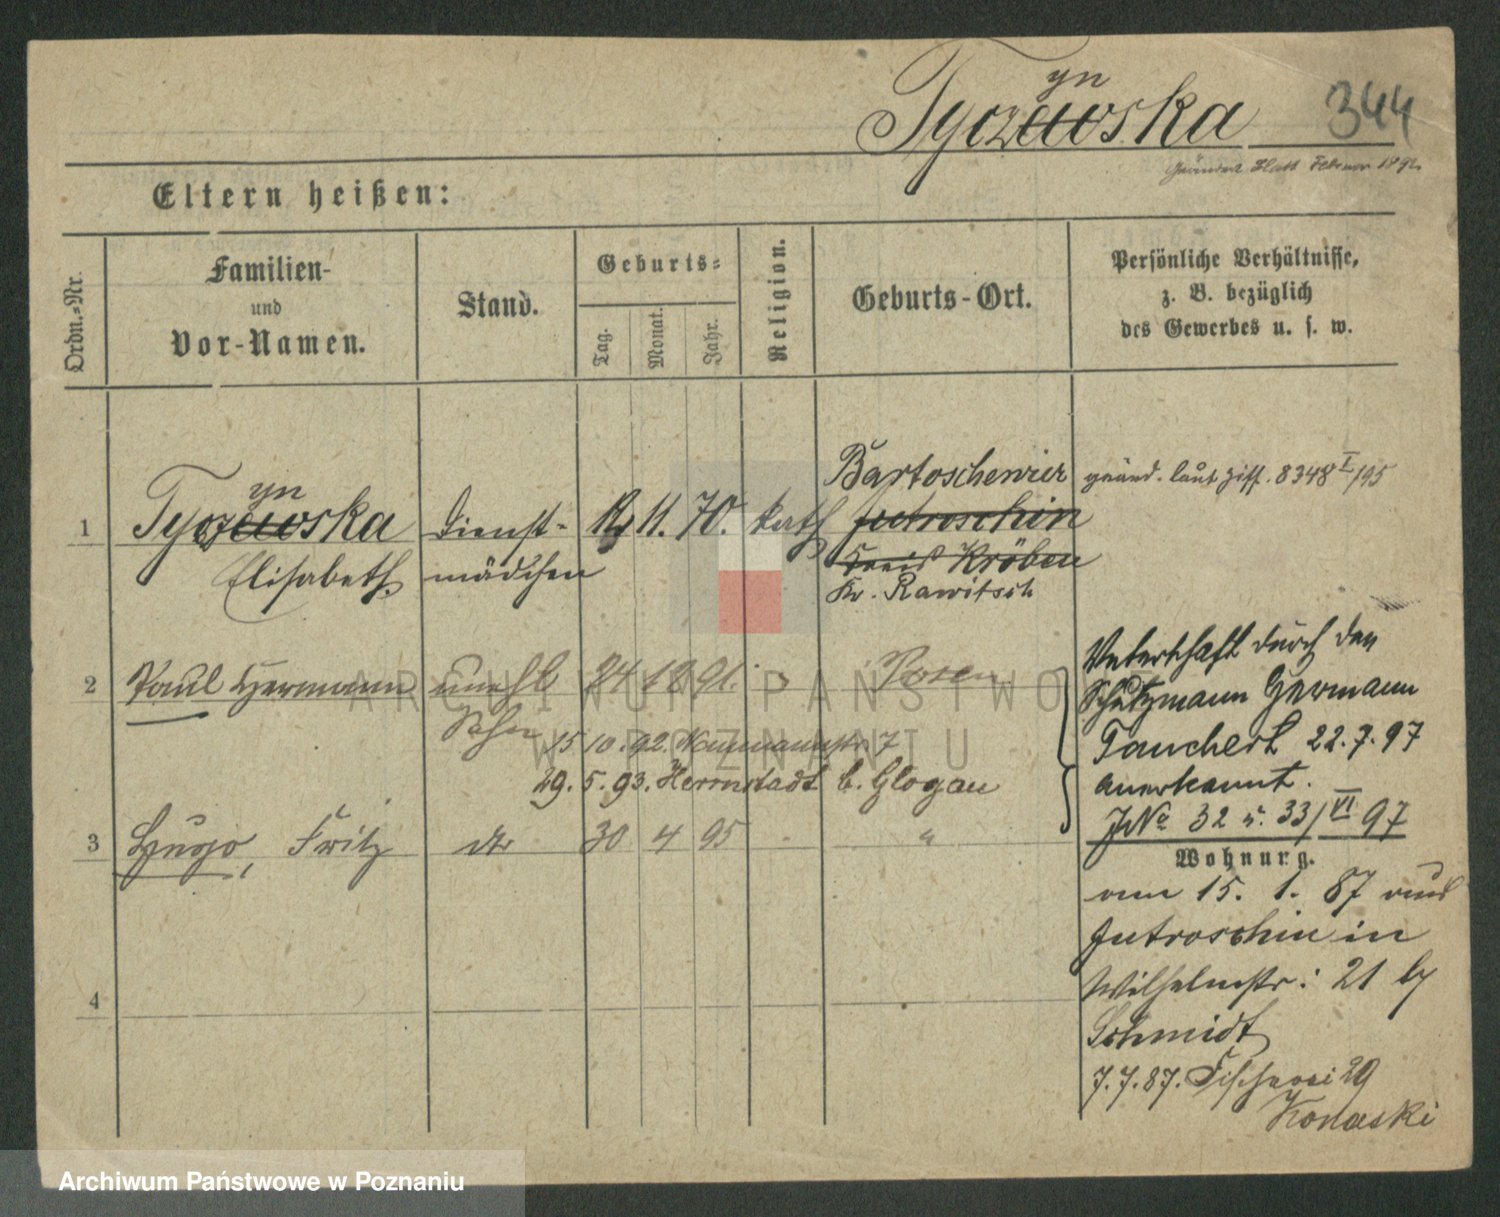 yn
Tyczewska 344
geändert Blatt Februar 1892
Eltern heißen:
Ordn.-Nr.
Familien-
und
Vor-Namen.
Stand.
Geburts-
Tag. Monat. Jahr.
Religion.
Geburts-Ort.
Persönliche Verhältnisse,
z. B. bezüglich
des Gewerbes u. s. w.
Bartoschewier geänd. laut Ziff. 8348 I/95
yn
1 Tyczewska Dienst- 11. 70. kath Jutroschin
Elisabeth mädchen Kreis Kröben
Kr. Rawitsch
2 Paul Hermann unehl 24 12 91. Posen
Sohn
15 10. 92. Naumannstr. 7
29. 5. 93. Herrnstadt b. Glogau
3 Hugo, Fritz dto 30 4 95 - "
4
Vaterschaft durch den
Schutzmann Hermann
Tauchert 22.7.97
anerkannt.
JNo 32 u. 33/VI 97
Wohnung.
am 15. 1. 87 aus
Jutroschin in
Wilhelmstr: 21 by
Schmidt
7.7.87. Fischerei 29
Konaski
ARCHIWUM PAŃSTWO
W POZNANIU
Archiwum Państwowe w Poznaniu